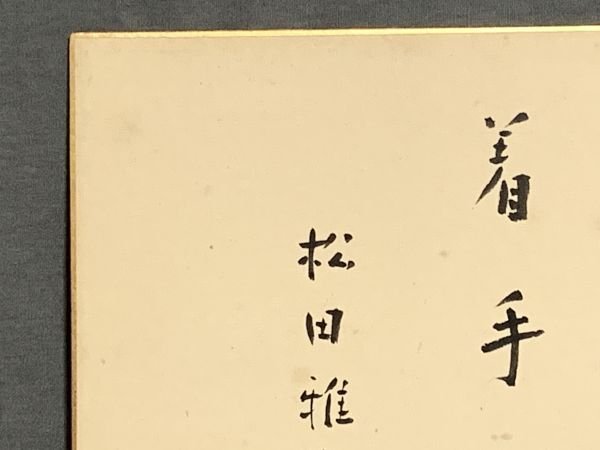 着手
松田雅